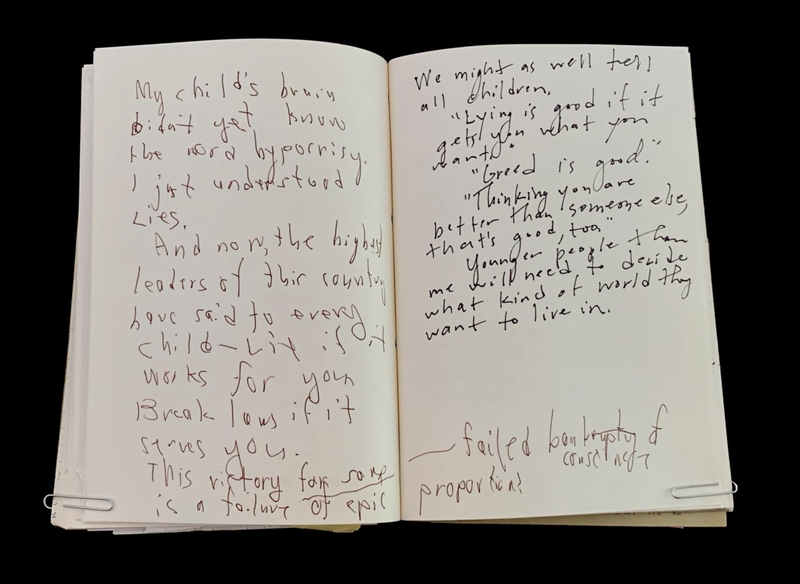 My child's brain
didn't yet know
the word hypocrisy.
I just understood
Lies.
And now, the highest
leaders of this country
have said to every
child – Lie if it
works for you
Break laws if it
serves you.
This victory for some
is a failure of epic
We might as well tell
all children,
"Lying is good if it
gets you what you
want."
"Greed is good."
"Thinking you are
better than someone else,
that's good, too."
Younger people than
me will need to decide
what kind of world they
want to live in.
— failed bankruptcy of
proportions